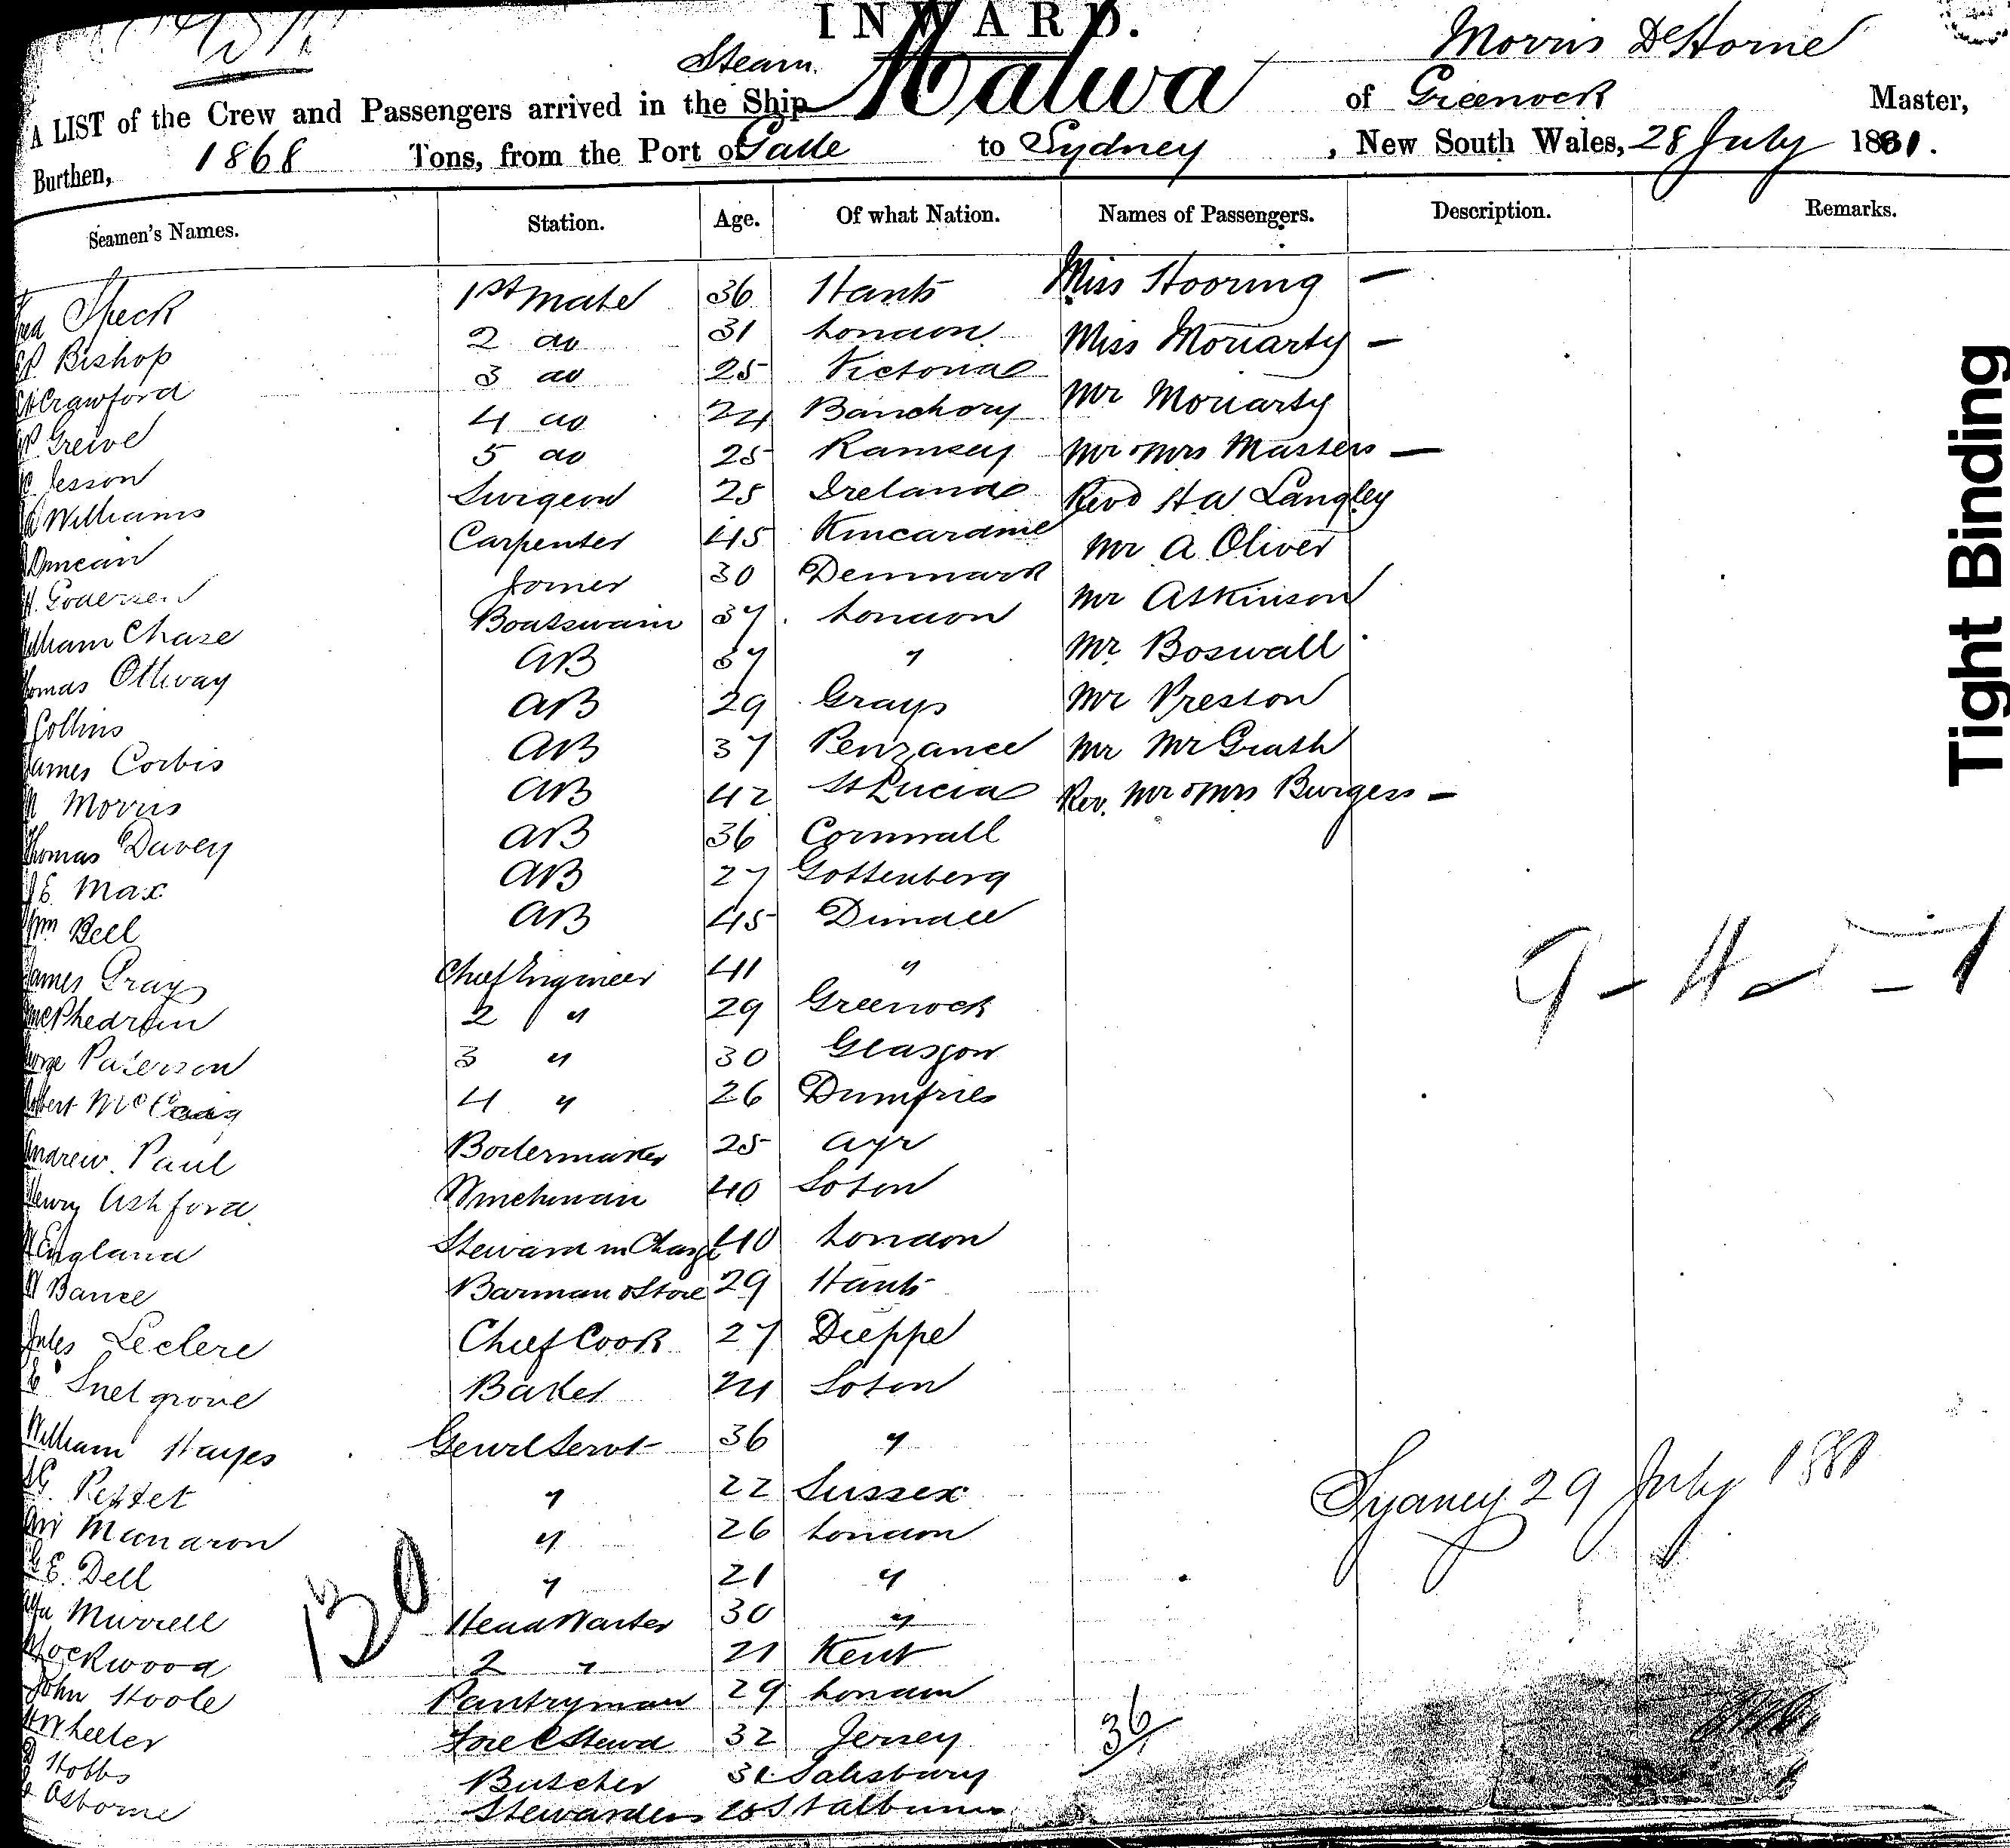 INWARD.
Steam
Morris DeHorne
A LIST of the Crew and Passengers arrived in the Ship Malwa of Greenock Master,
Burthen, 1868 Tons, from the Port of Galle to Sydney, New South Wales, 28 July 1881.
Seamen's Names. Station. Age. Of what Nation. Names of Passengers. Description. Remarks.
Speck 1st Mate 36 Hants Miss Hooring —
Bishop 2 do 31 London Miss Moriarty —
Crawford 3 do 25 Victoria Mr Moriarty
Greive 4 do 24 Banchory Mr & Mrs Masters —
Jesson 5 do 25 Ramsey Revd H A Langley
Williams Surgeon 25 Ireland Mr A Oliver
Duncan Carpenter 45 Kincardine Mr Atkinson
Joiner 30 Denmark Mr Boswall
William Chase Boatswain 37 London Mr Preston
Thomas Ottway AB 37 " Mr McGrath
Collins AB 29 Grays Rev. Mr & Mrs Burgess —
James Corbis AB 37 Penzance
Morris AB 42 St Lucia
Thomas Davey AB 36 Cornwall
E. Max AB 27 Gottenberg
Wm Bell AB 45 Dundee
James Gray Chief Engineer 41 "
McPhedran 2 " 29 Greenock
George Paterson 3 " 30 Glasgow
Robert McCaig 4 " 26 Dumfries
Andrew Paul Boilermaker 25 Ayr
Henry Ashford Winchman 40 Soton
England Steward in Charge 40 London
Bance Barman & Store 29 Hants
Jules Leclere Chief Cook 27 Dieppe
Snelgrove Baker 24 Soton
William Hayes Genrl Servt 36 "
G. Pettet " 22 Sussex
26 London
E. Dell " 21 "
Murrell Head Waiter 30 "
Lockwood 2 " 21 Kent
John Hoole Pantryman 29 London
Wheeler Fore C Stewd 32 Jersey
Hobbs Butcher 31 Salisbury
Osborne Stewardess St Albans
130
36
Sydney 29 July 1881
Tight Binding